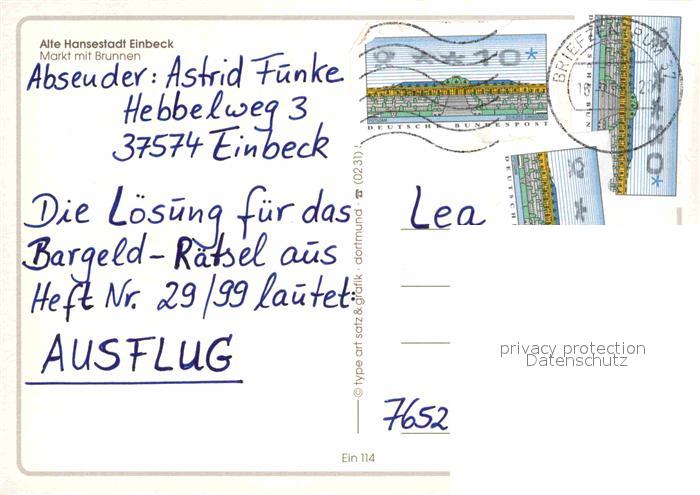 Alte Hansestadt Einbeck
Markt mit Brunnen
Absender: Astrid Funke
Hebbelweg 3
37574 Einbeck
Die Lösung für das
Bargeld-Rätsel aus
Heft Nr. 29/99 lautet:
AUSFLUG
© type art satz & grafik · dortmund · ☎ (0231)
Ein 114
DEUTSCHE BUNDESPOST
BRIEFZENTRUM 37
Lea
7652
privacy protection
Datenschutz